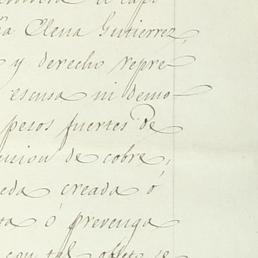 a Elena Gutierrez,
y derecho repre-
escusa ni demo-
pesos fuertes de
ucion de cobre,
eda creada ó
ta ó prevenga
con tal objeto se